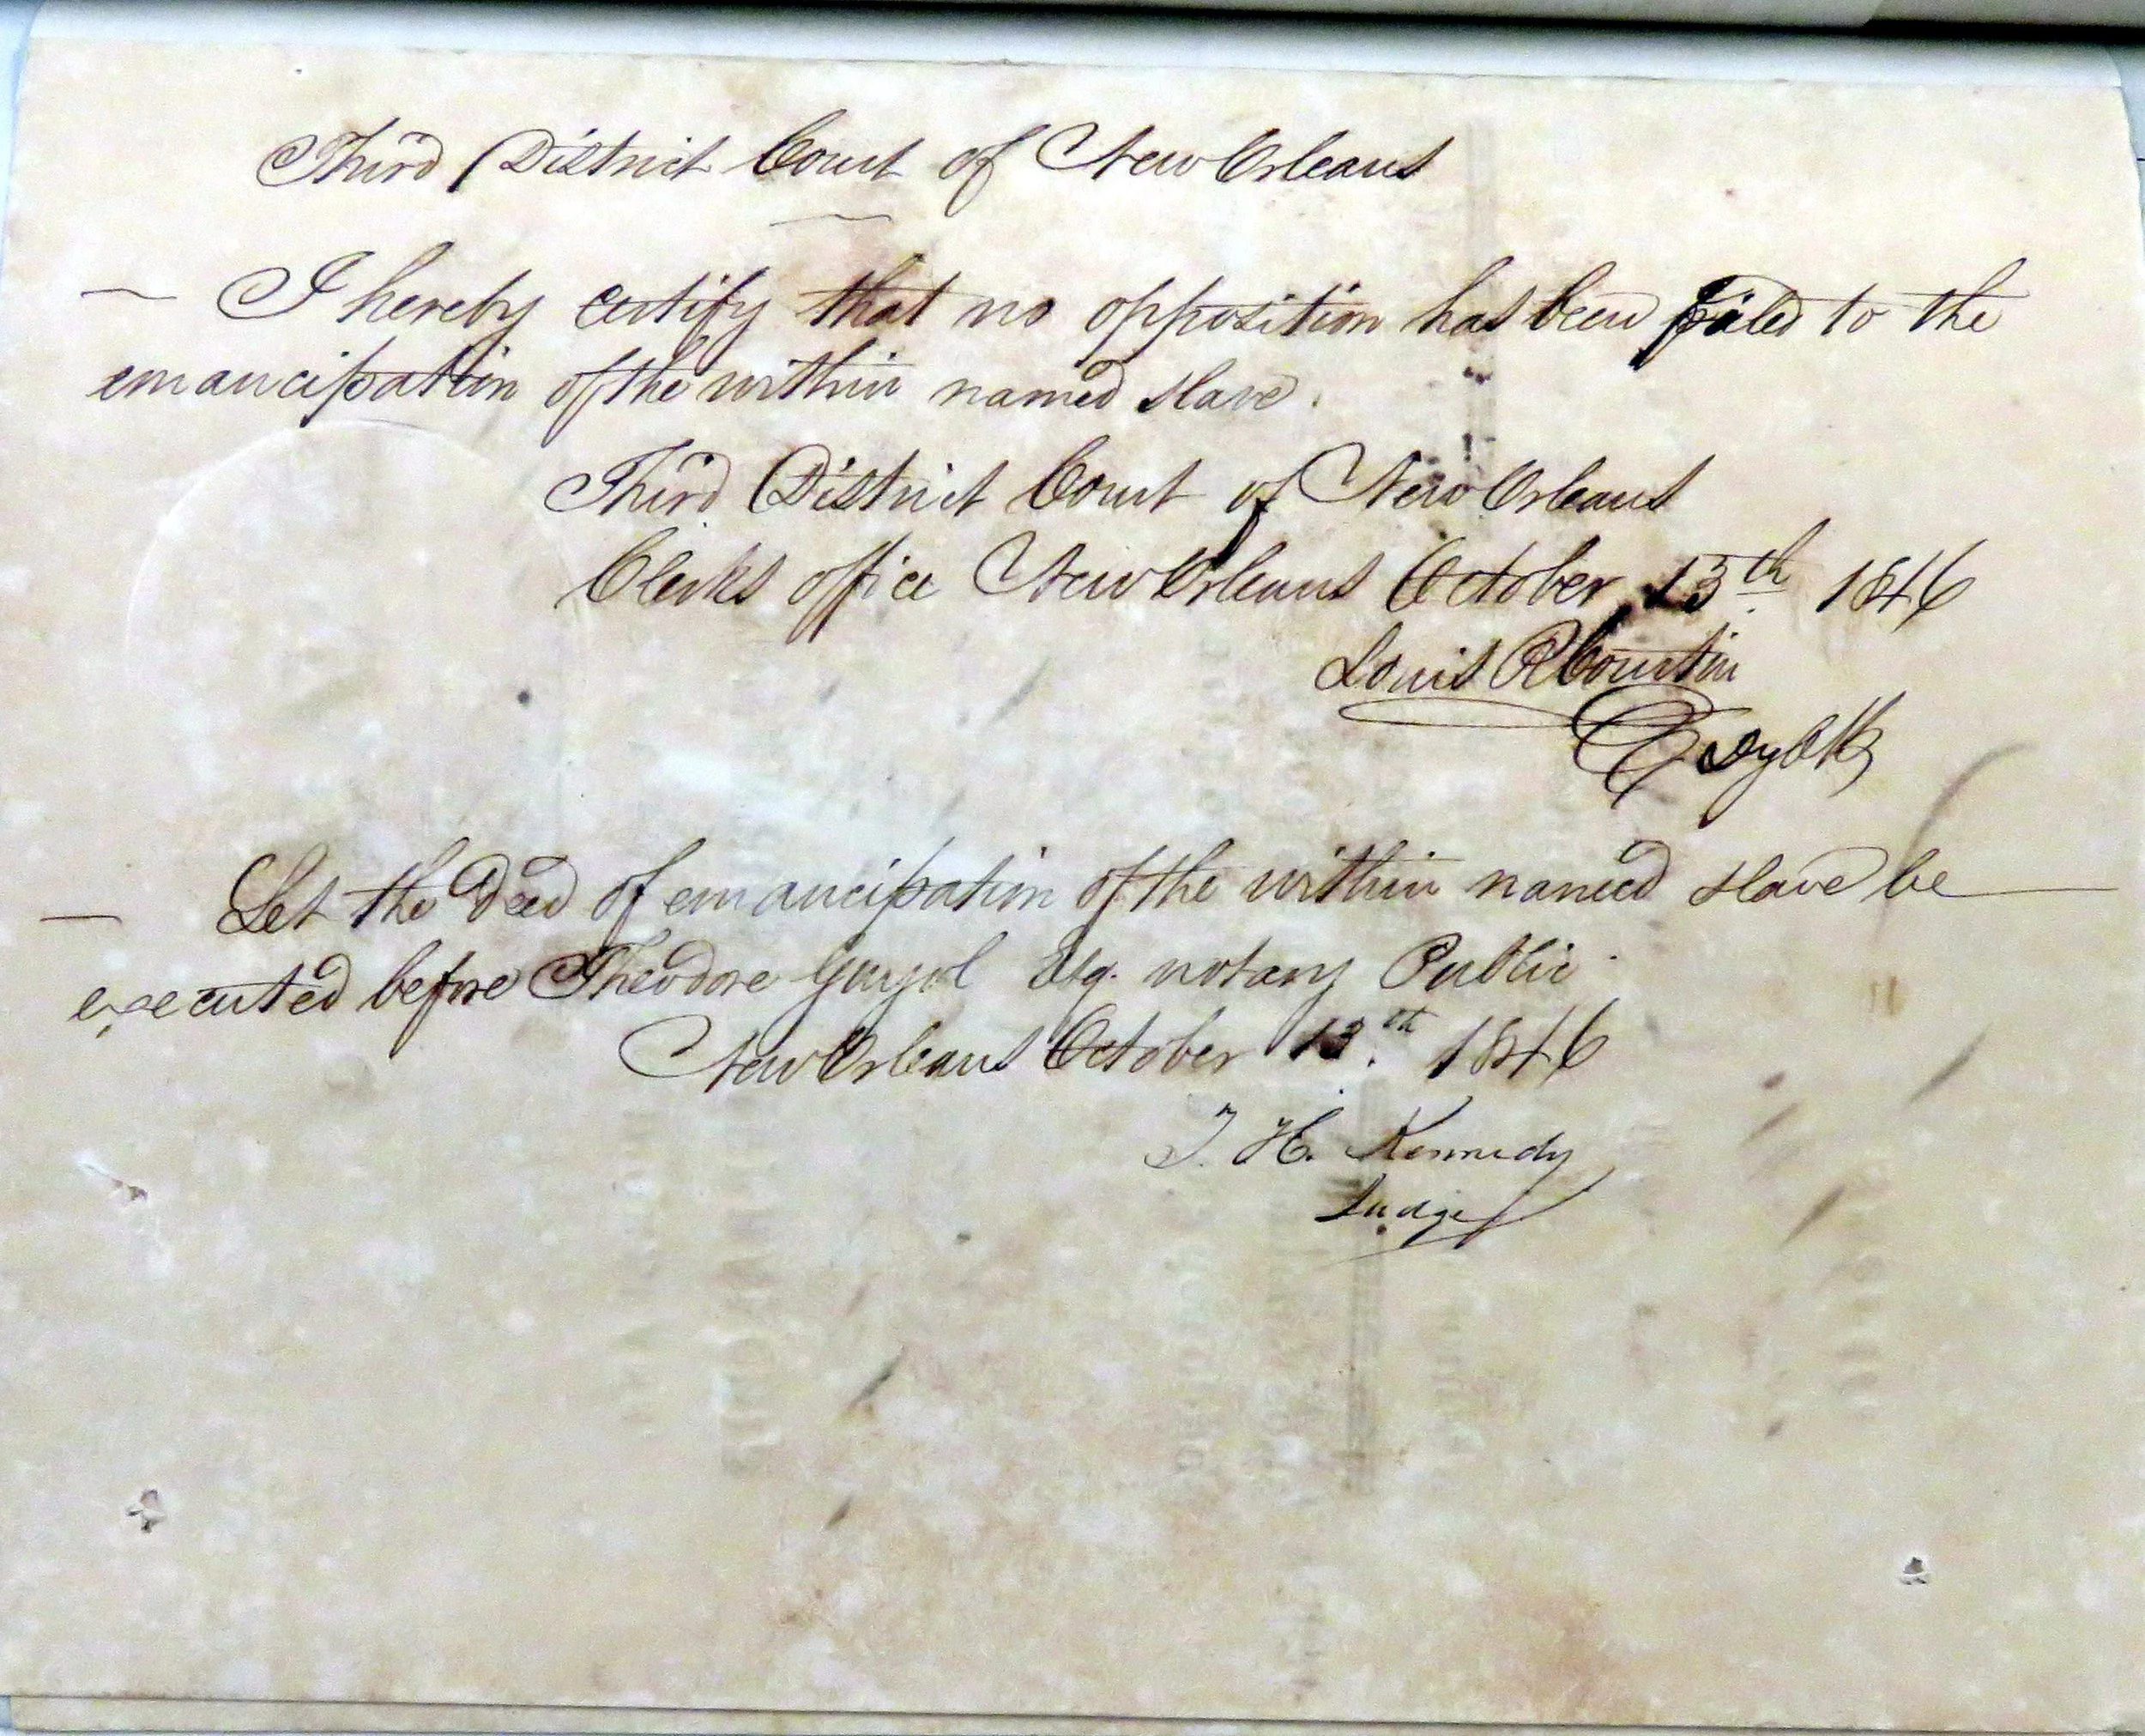 Third District Court of New Orleans
I hereby certify that no opposition has been filed to the
emancipation of the within named slave.
Third District Court of New Orleans
Clerks office New Orleans October 13th 1846
Louis R Courtin
Dy Clk
Let the Deed of emancipation of the within named slave be
executed before Theodore Guyol Esq. notary Public.
New Orleans October 13th 1846
T. H. Kennedy
Judge